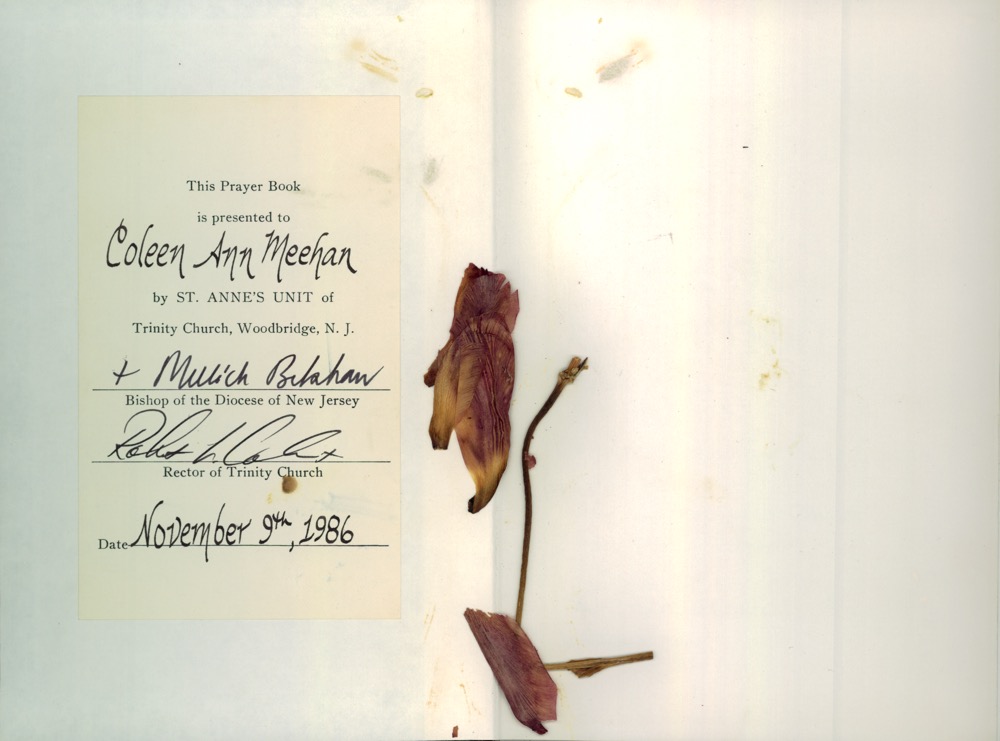 This Prayer Book
is presented to
Coleen Ann Meehan
by ST. ANNE'S UNIT of
Trinity Church, Woodbridge, N. J.
+
Bishop of the Diocese of New Jersey
Rector of Trinity Church
Date November 9th, 1986